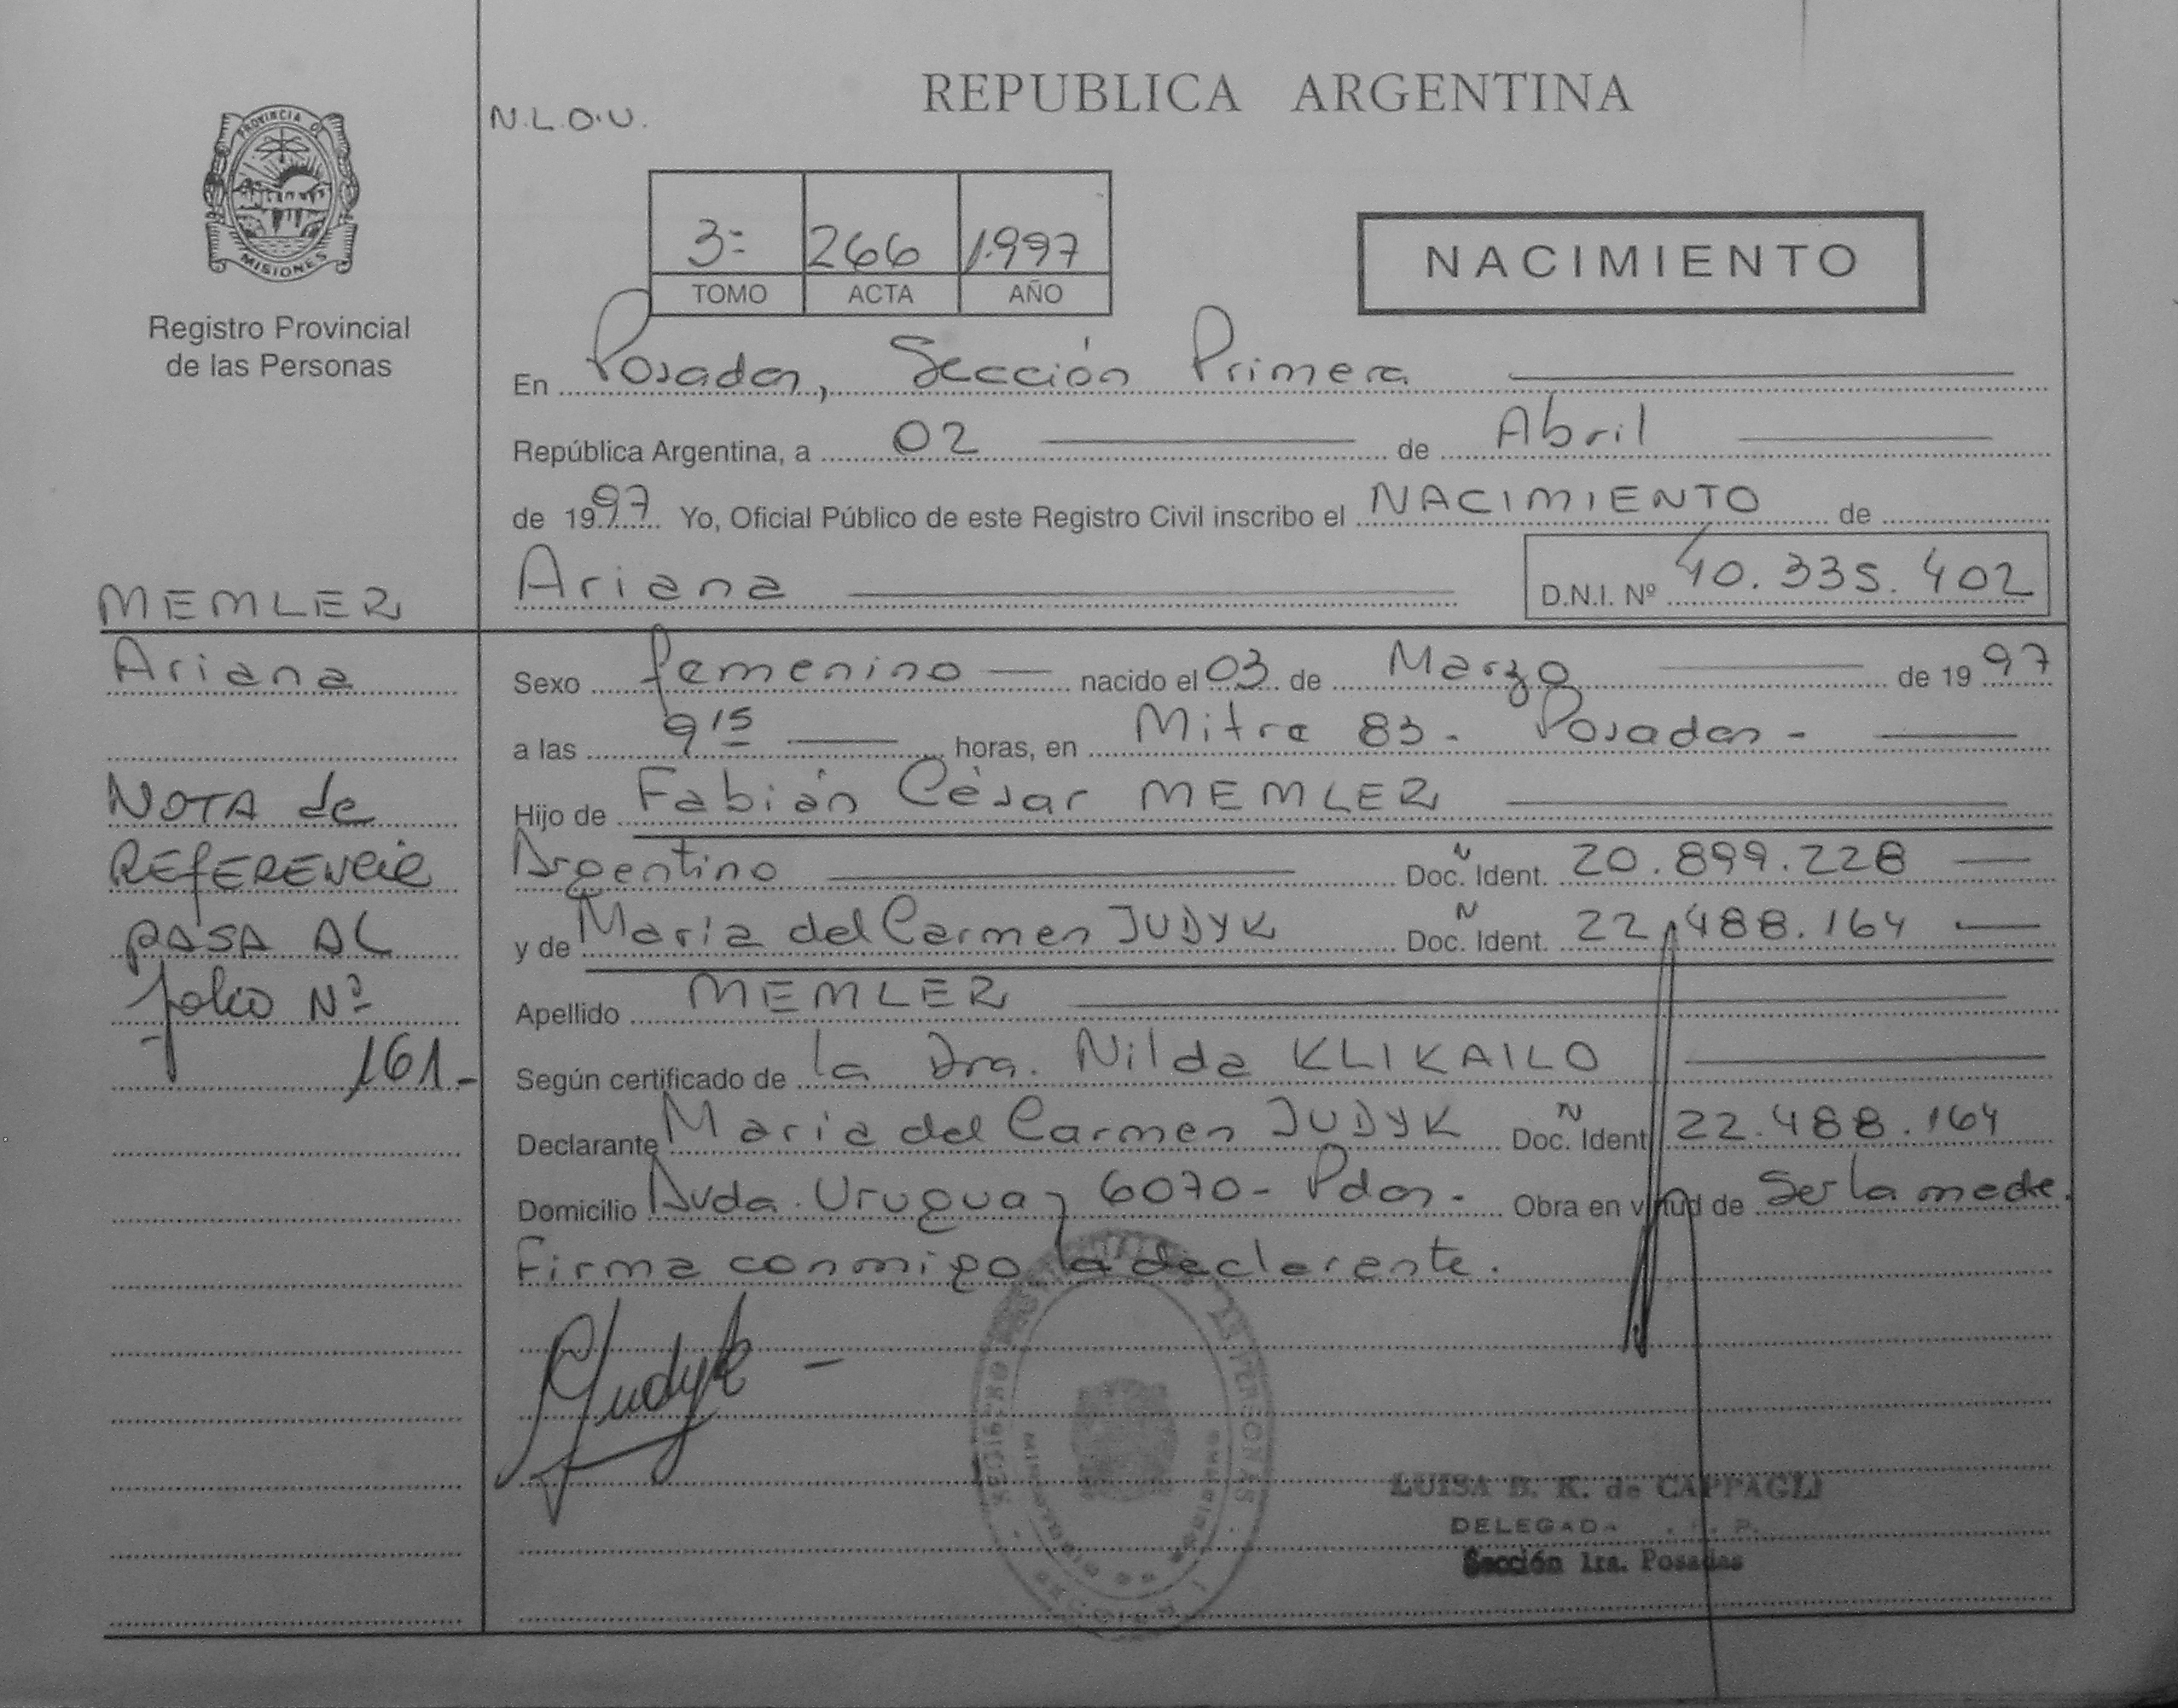 REPUBLICA ARGENTINA
N.L.O.U.
PROVINCIA DE
MISIONES
Registro Provincial
de las Personas
3= 266 1.997
TOMO ACTA AÑO
NACIMIENTO
En Posadas, Sección Primera
República Argentina, a 02 de Abril
de 1997 Yo, Oficial Público de este Registro Civil inscribo el NACIMIENTO de
Ariana D.N.I. Nº 40.335.402
MEMLER
Ariana
NOTA de
REFERENCIA
PASA AL
folio Nº
161-
Sexo femenino nacido el 03 de Marzo de 1997
a las 9 15 horas, en Mitre 83 - Posadas -
Hijo de Fabián César MEMLER
Argentino Doc. N Ident. 20.899.228
y de María del Carmen JUDYK Doc. N Ident. 22.488.164
Apellido MEMLER
Según certificado de la Dra. Nilda KLIKAILO
Declarante María del Carmen JUDYK Doc. N Ident 22.488.164
Domicilio Avda. Uruguay 6070 - Pdas. Obra en virtud de Ser la madre.
Firma conmigo la declarante.
Judyk -
LUISA B. K. de CAPPAGLI
DELEGADA
Sección 1ra. Posadas